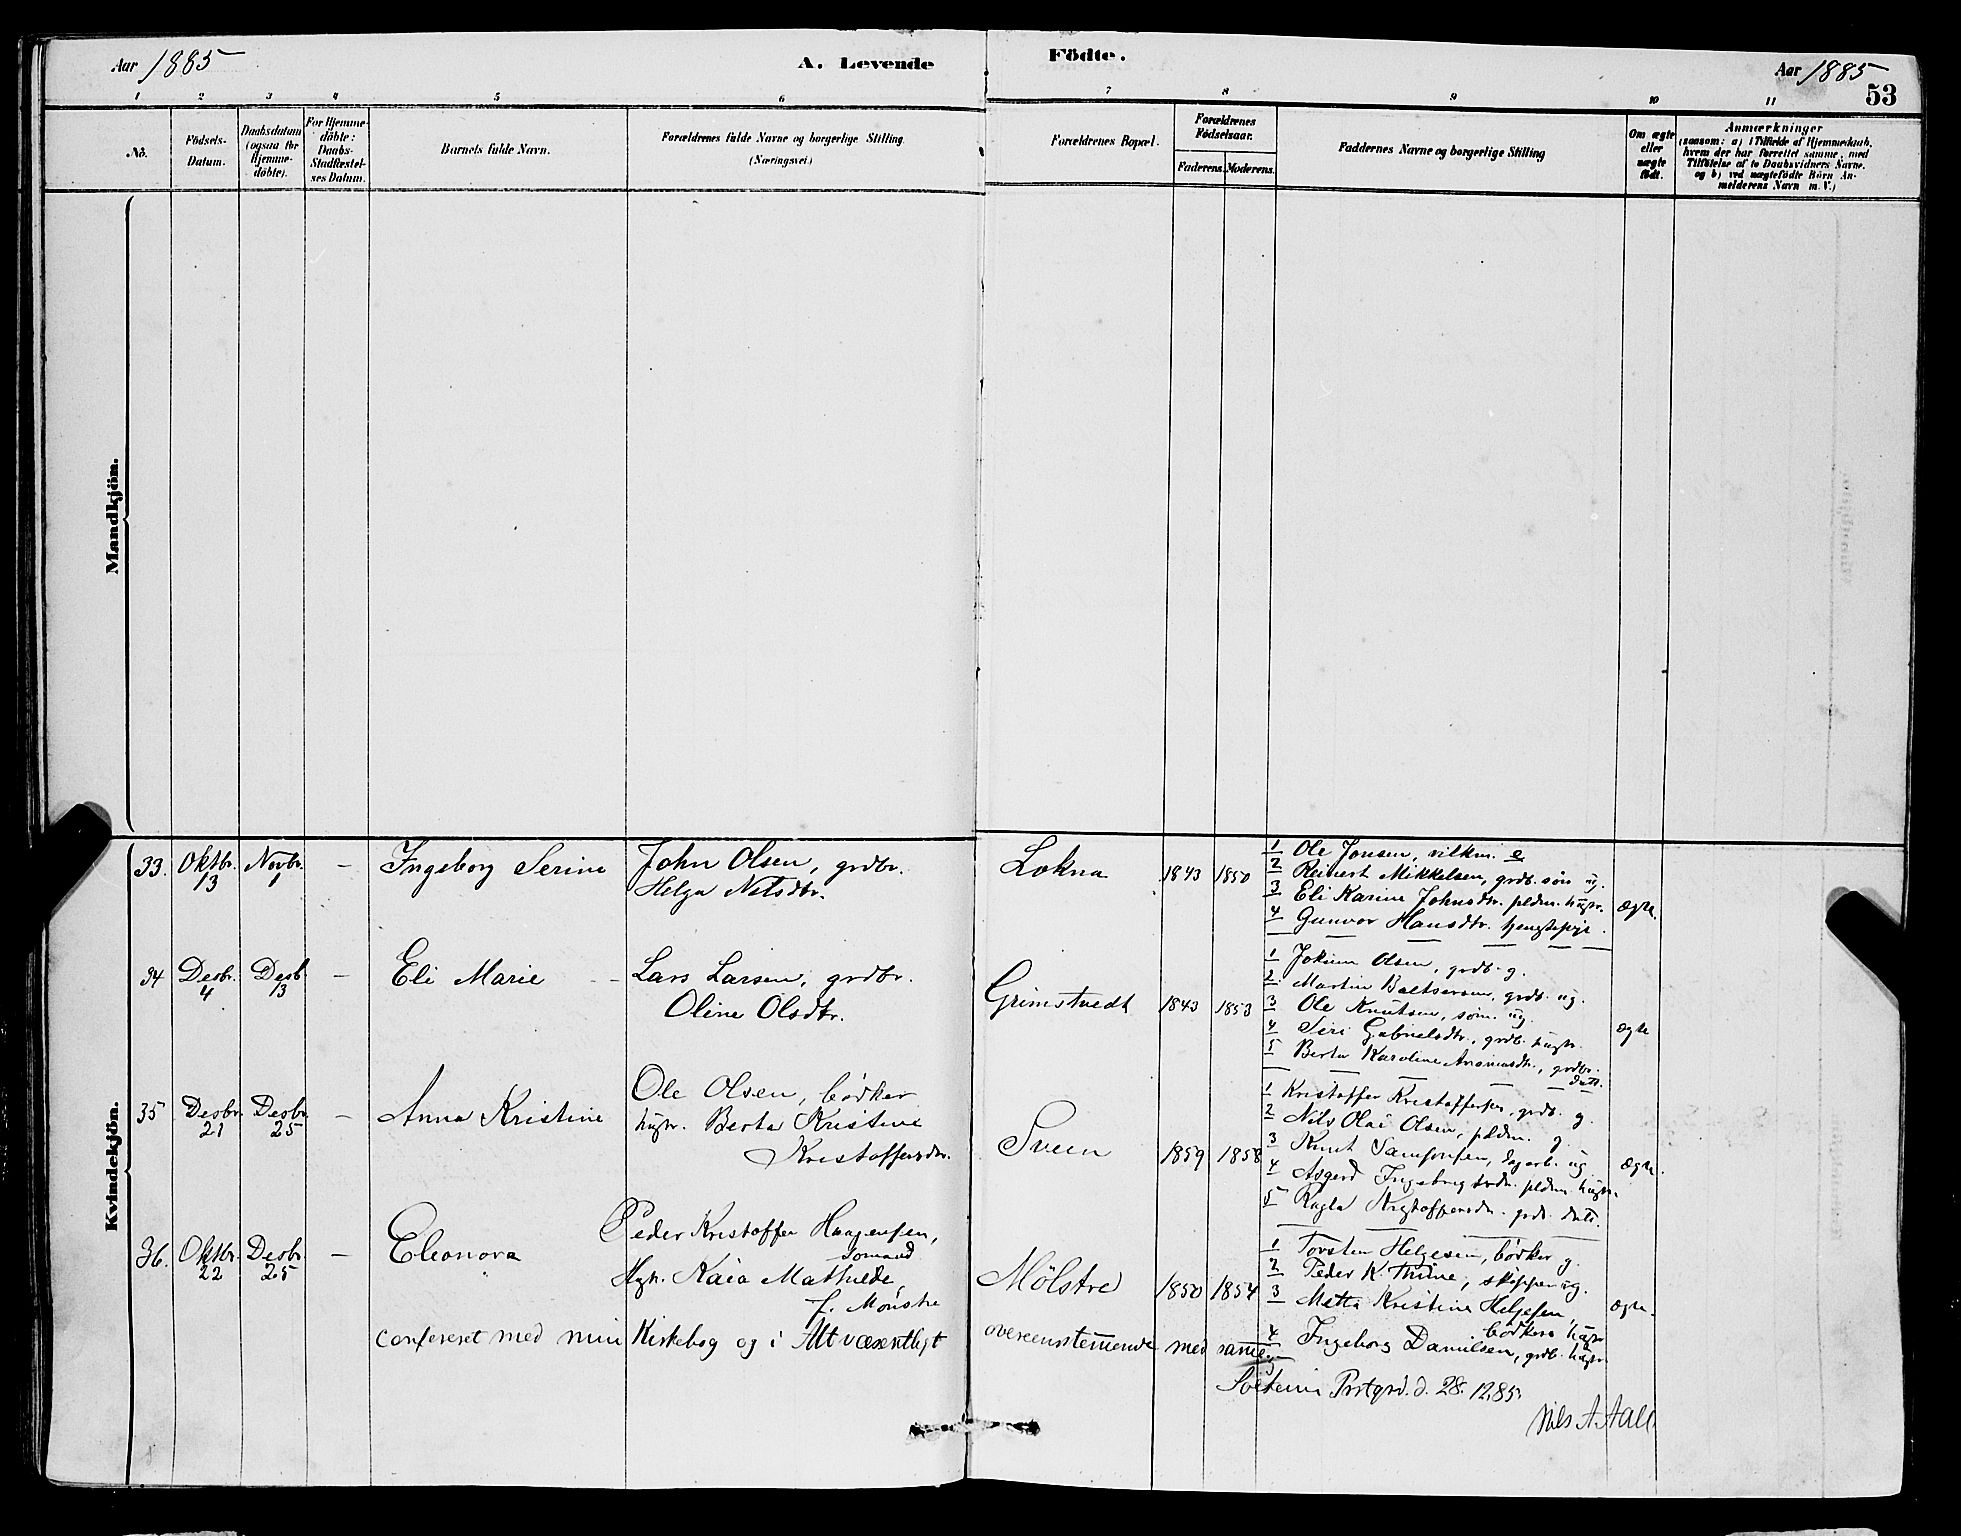 Aar 1885
A. Levende
Födte.
Aar 1885
53
1 2 3 4 5 6 7 8 9 10 11
No.
Födsels-
Datum.
Daabsdatum
(ogsaa for
Hjemme-
döbte).
For Hjemme-
döbte:
Daabs-
Stadfæstel-
ses Datum.
Barnets fulde Navn.
Forældrenes fulde Navne og borgerlige Stilling
(Næringsvei.)
Forældrenes Bopæl.
Forældrenes
Födselsaar.
Faderens. Moderens.
Faddernes Navne og borgerlige Stilling
Om ægte
eller
uægte
födt.
Anmærkninger
(saasom: a) i Tilfælde af Hjemmedaab,
hvem der har forrettet samme, med
Tilföielse af to Daabsvidners Navne.
og b) ved uægtefödte Börn An-
melderens Navn m. V.)
Mandkjön.
Kvindekjön.
33. Oktbr. 13 Novbr. 1 – Ingeborg Serine
John Olsen, grdbr.
Helga Nilsdtr.
Lokna 1843 1850
1 Ole Jonsen, vilkm. e
2 Reinert Mikkelsen, grdb. søn ug.
3 Eli Karine Johnsdtr. pldm. hustr.
4 Gunvor Hansdtr. tjenestepige.
ægte.
34 Desbr. 4 Desb 13 – Eli Marie –
Lars Larsen, grdbr.
Oline Olsdtr.
Grimstvedt 1843 1853
1 Jokum Olsen, grdb. g.
2 Martin Baltsersen, grdb. ug.
3 Ole Knutsen, søm. ug.
4 Siri Gabrielsdtr., grdb. hustr.
5 Berta Karoline Aronsdtr., grdbr.
datt.
ægte
35 Desbr. 21 Desbr. 25 – Anna Kristine
Ole Olsen, bødker
hustr. Berta Kristine
Kristoffersdtr.
Sveen 1859 1858
1 Kristoffer Kristoffersen, grdb. g.
2 Nils Olai Olsen, pldm. g.
3 Knut Samsonsen, dagarb. ug
4 Asgerd Ingebrigtsdtr. pldm. hustr.
5 Ragla Kristoffersdtr. grdb. datt.
ægte.
36. Oktbr. 22 Desbr. 25 – Eleonora
Peder Kristoffer Haagensen,
Sømand
Hstr. Kaia Mathilde,
f. Mönstre
Mölstre 1850 1854
1 Torsten Helgesen, bødker g.
2 Peder K. Thime, skipper ug.
3 Metta Kristine Helgesen
bødkers hustr
4 Ingeborg Danielsen, grdb. hustr
ægte.
confereret med min Kirkebog og i Alt væsentligt overeensstemmende med samme
Prstgrd. d. 28. 12. 85.
Nils A. Aall